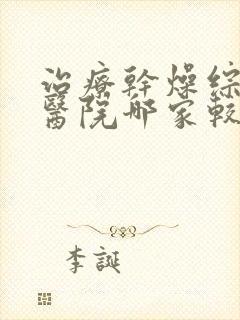 治療幹燥綜
醫院哪家較
李誕